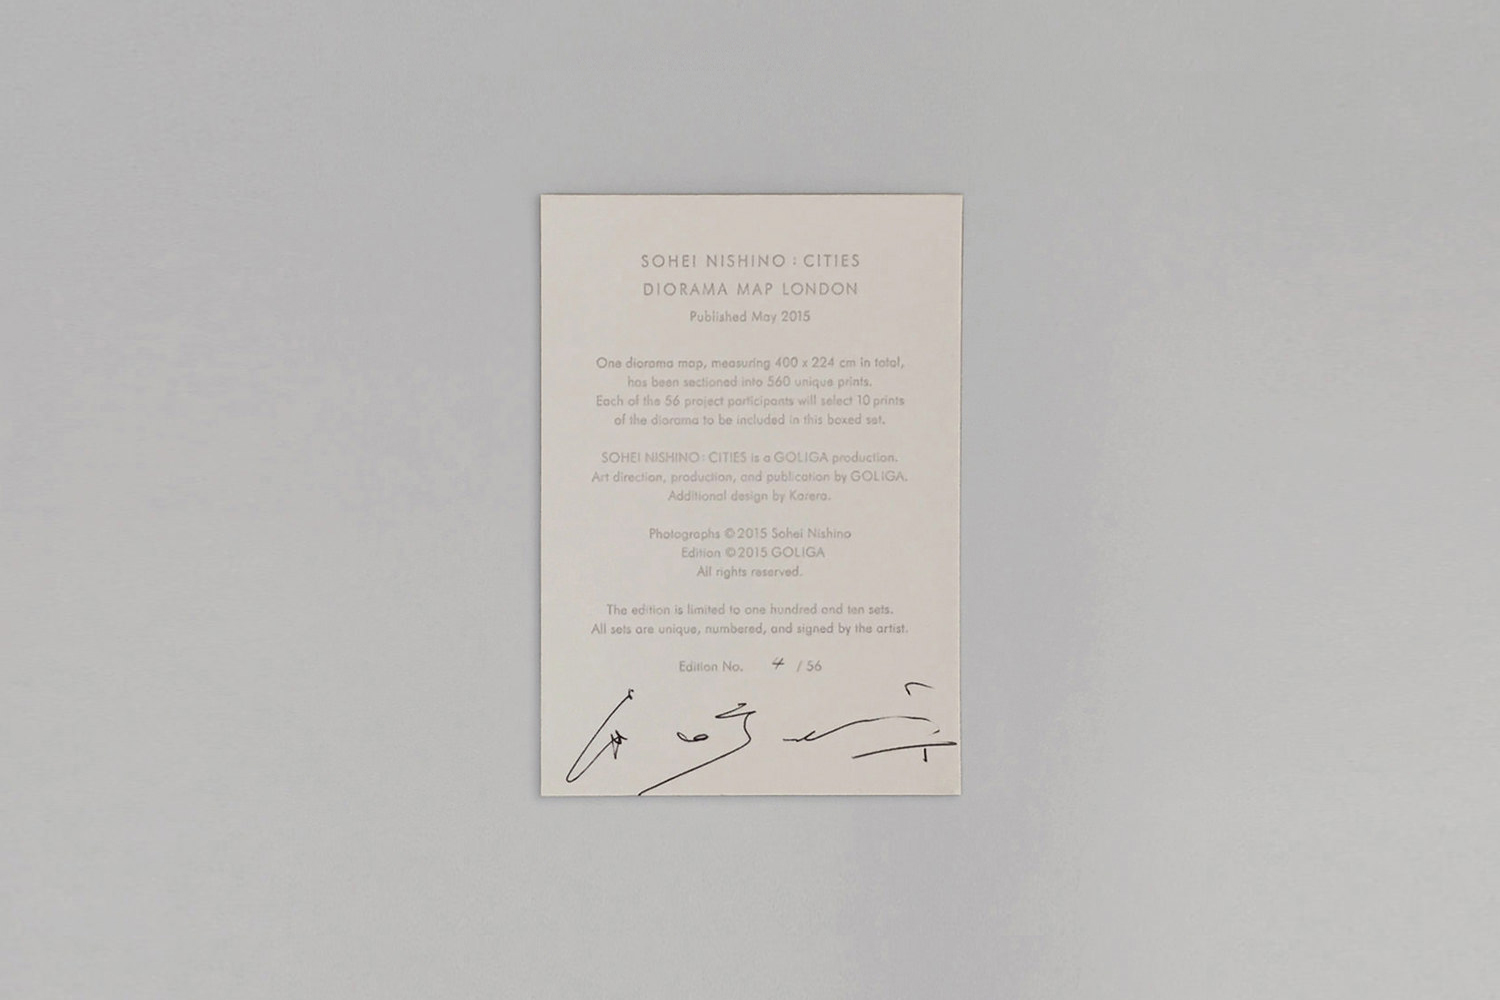 SOHEI NISHINO : CITIES
DIORAMA MAP LONDON
Published May 2015
One diorama map, measuring 400 x 224 cm in total,
has been sectioned into 560 unique prints.
Each of the 56 project participants will select 10 prints
of the diorama to be included in this boxed set.
SOHEI NISHINO : CITIES is a GOLIGA production.
Art direction, production, and publication by GOLIGA.
Additional design by Karera.
Photographs © 2015 Sohei Nishino
Edition © 2015 GOLIGA
All rights reserved.
The edition is limited to one hundred and ten sets.
All sets are unique, numbered, and signed by the artist.
Edition No. 4 / 56